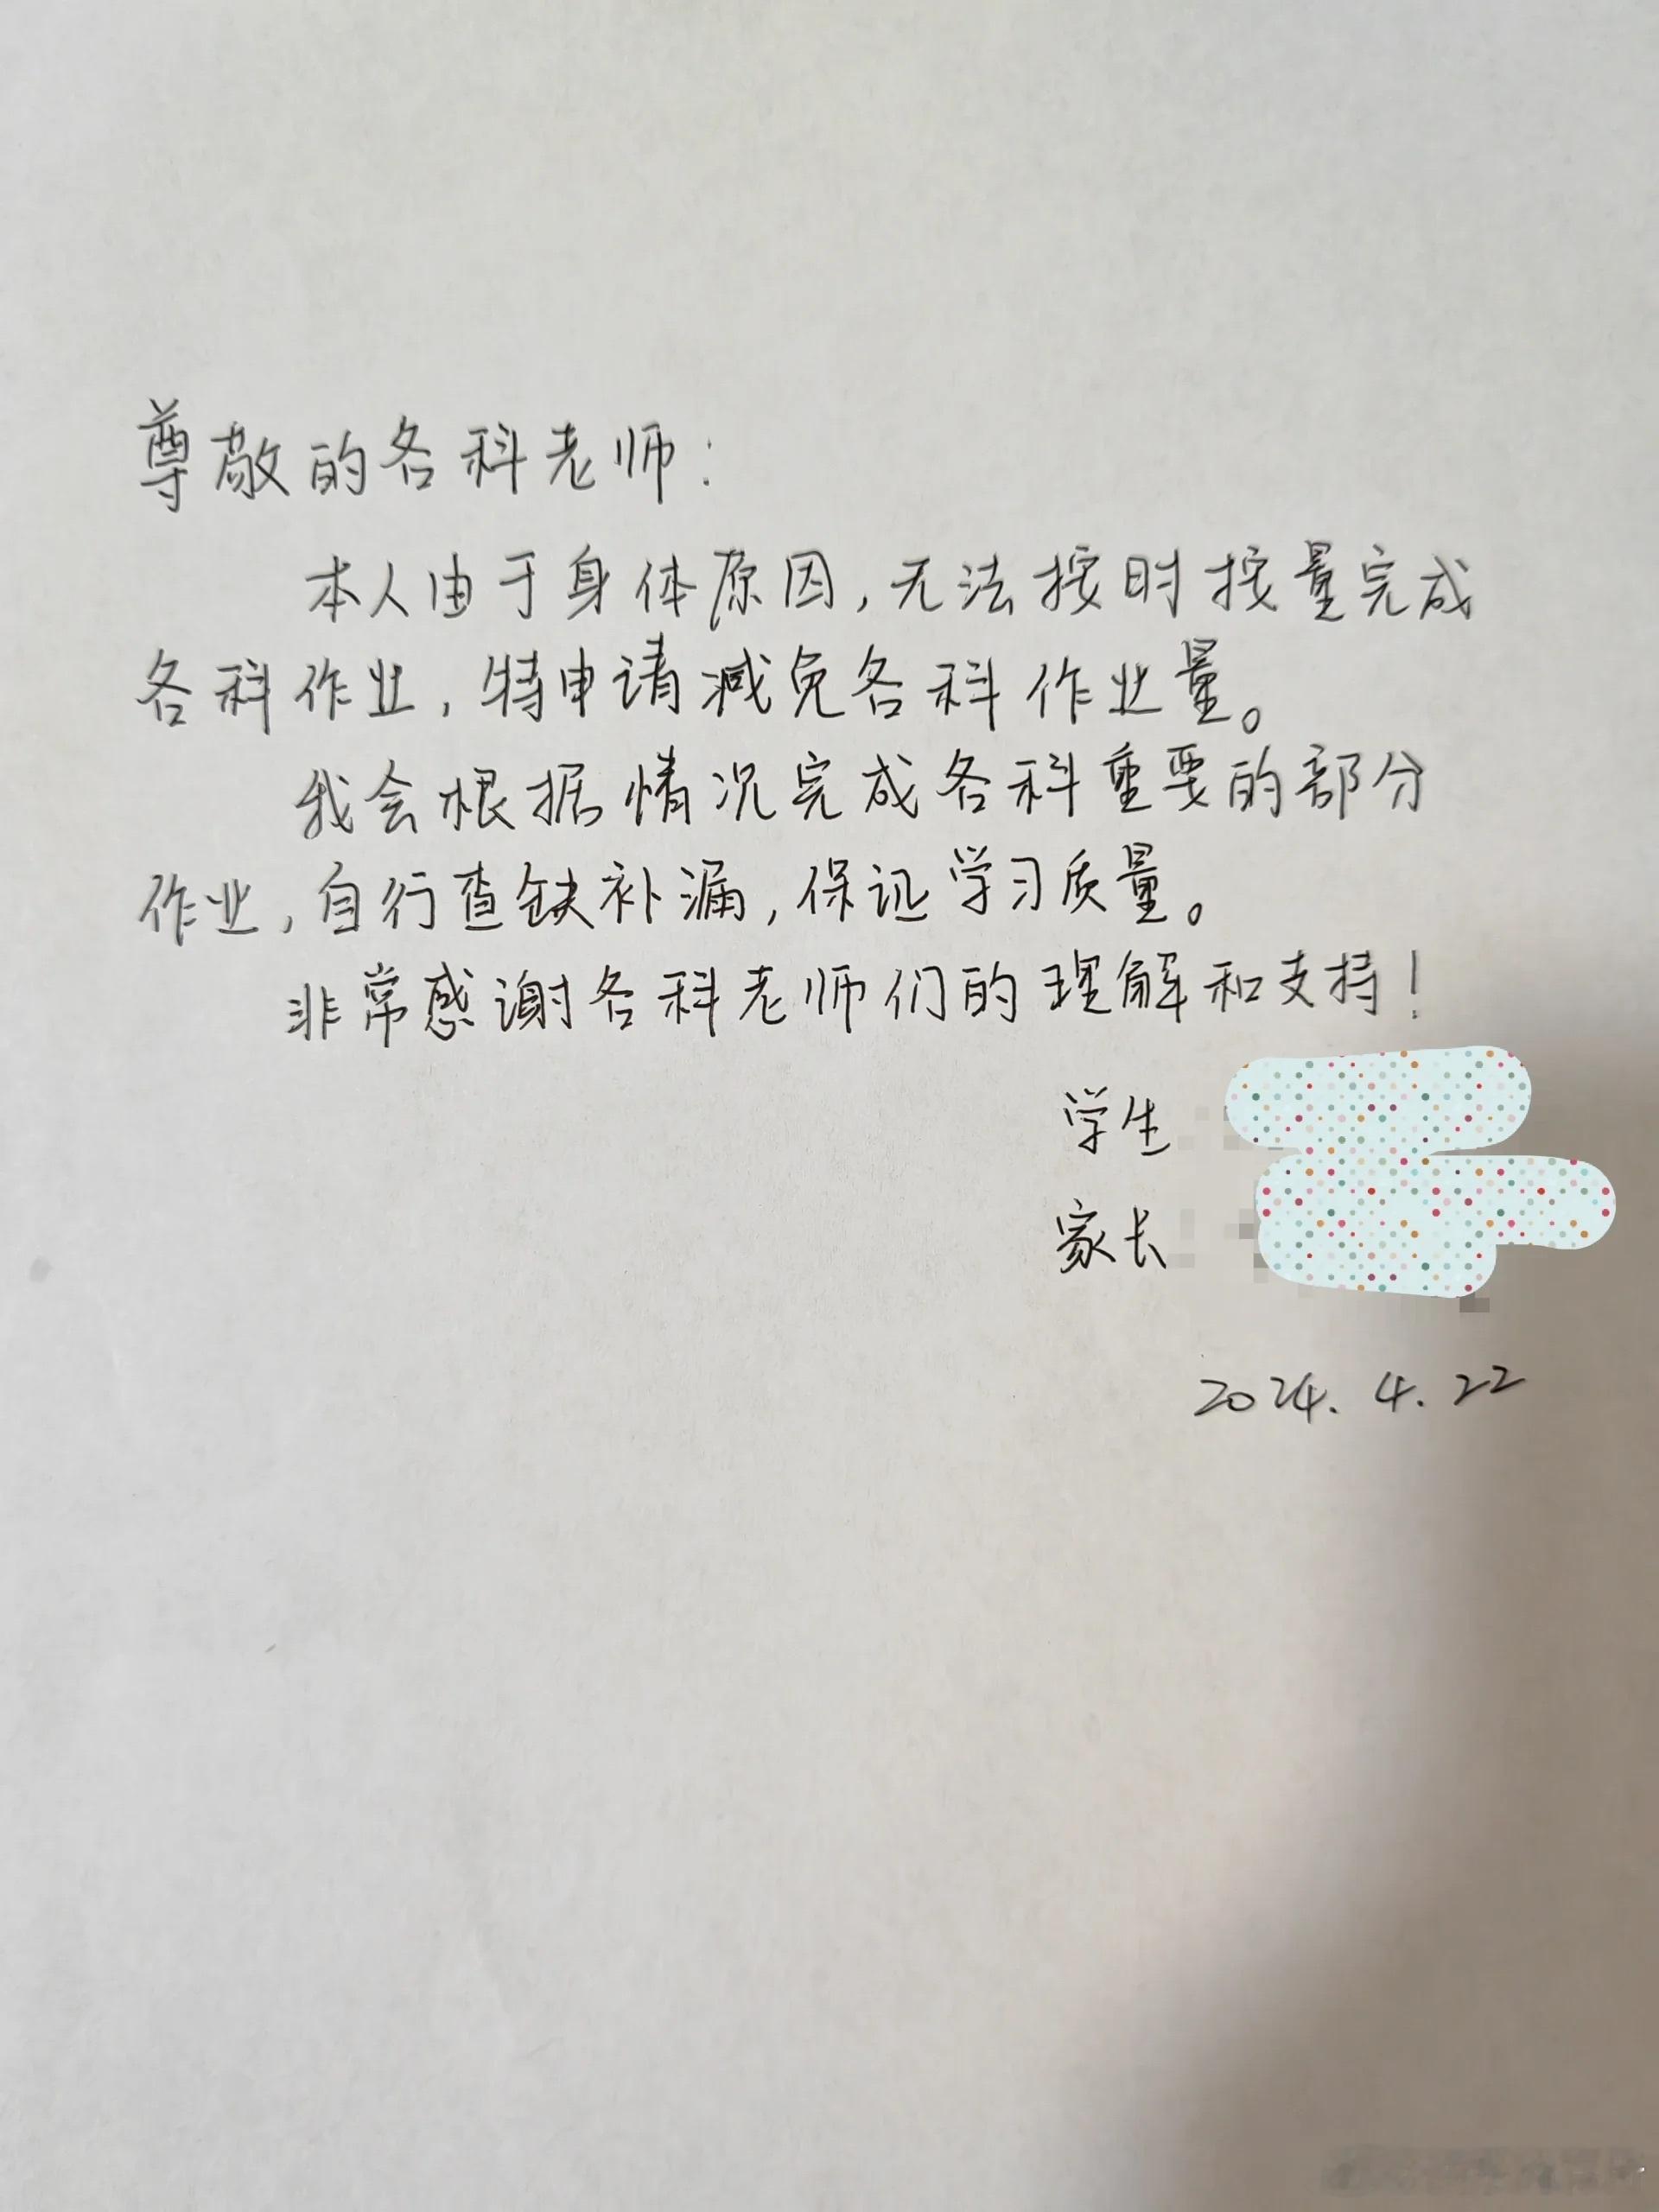 尊敬的各科老师:
本人由于身体原因,无法按时按量完成
各科作业,特申请减免各科作业量。
我会根据情况完成各科重要的部分
作业,自行查缺补漏,保证学习质量。
非常感谢各科老师们的理解和支持!
学生
家长
2024.4.22